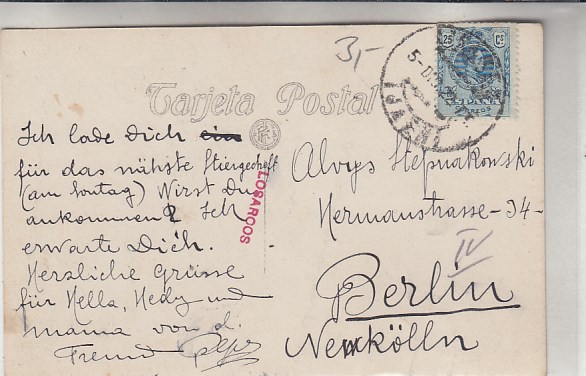 3,-
25 Cs
ESPAÑA
CORREOS
Tarjeta Postal
Ich lade Dich ein
für das nähste Stiergefecht
(am Sontag) Wirst Du
ankommen? Ich
erwarte Dich.
Herzliche Grüsse
für Hella, Hedy und
mama von d.
Freund Pepe
LOSARCOS
Alvys Stepnakowski
Hermanstrasse-34-
IV
Berlin
Neukölln